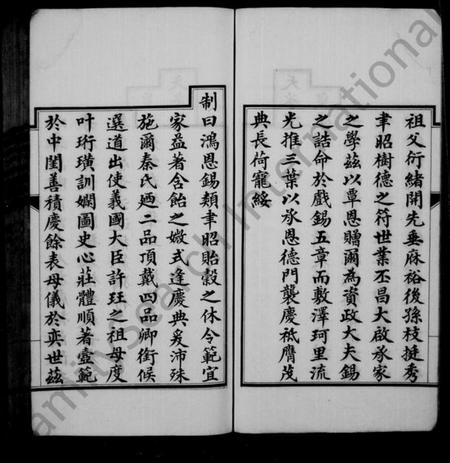 祖父衍緒開先垂庥裕後孫枝挺秀
聿昭樹德之符世業丕昌大啟承家
之學茲以覃恩贈爾為資政大夫錫
之誥命於戲錫五章而敷澤珂里流
光推三葉以承恩德門襲慶祗膺茂
典長荷寵綏
制曰鴻恩錫類聿昭貽穀之休令範宜
家益著含飴之媺式逢慶典爰沛殊
施爾秦氏迺二品頂戴四品卿銜候
選道出使義國大臣許珏之祖母度
叶珩璜訓嫻圖史心莊體順著壼範
於中閨善積慶餘表母儀於奕世茲
FamilySearch International